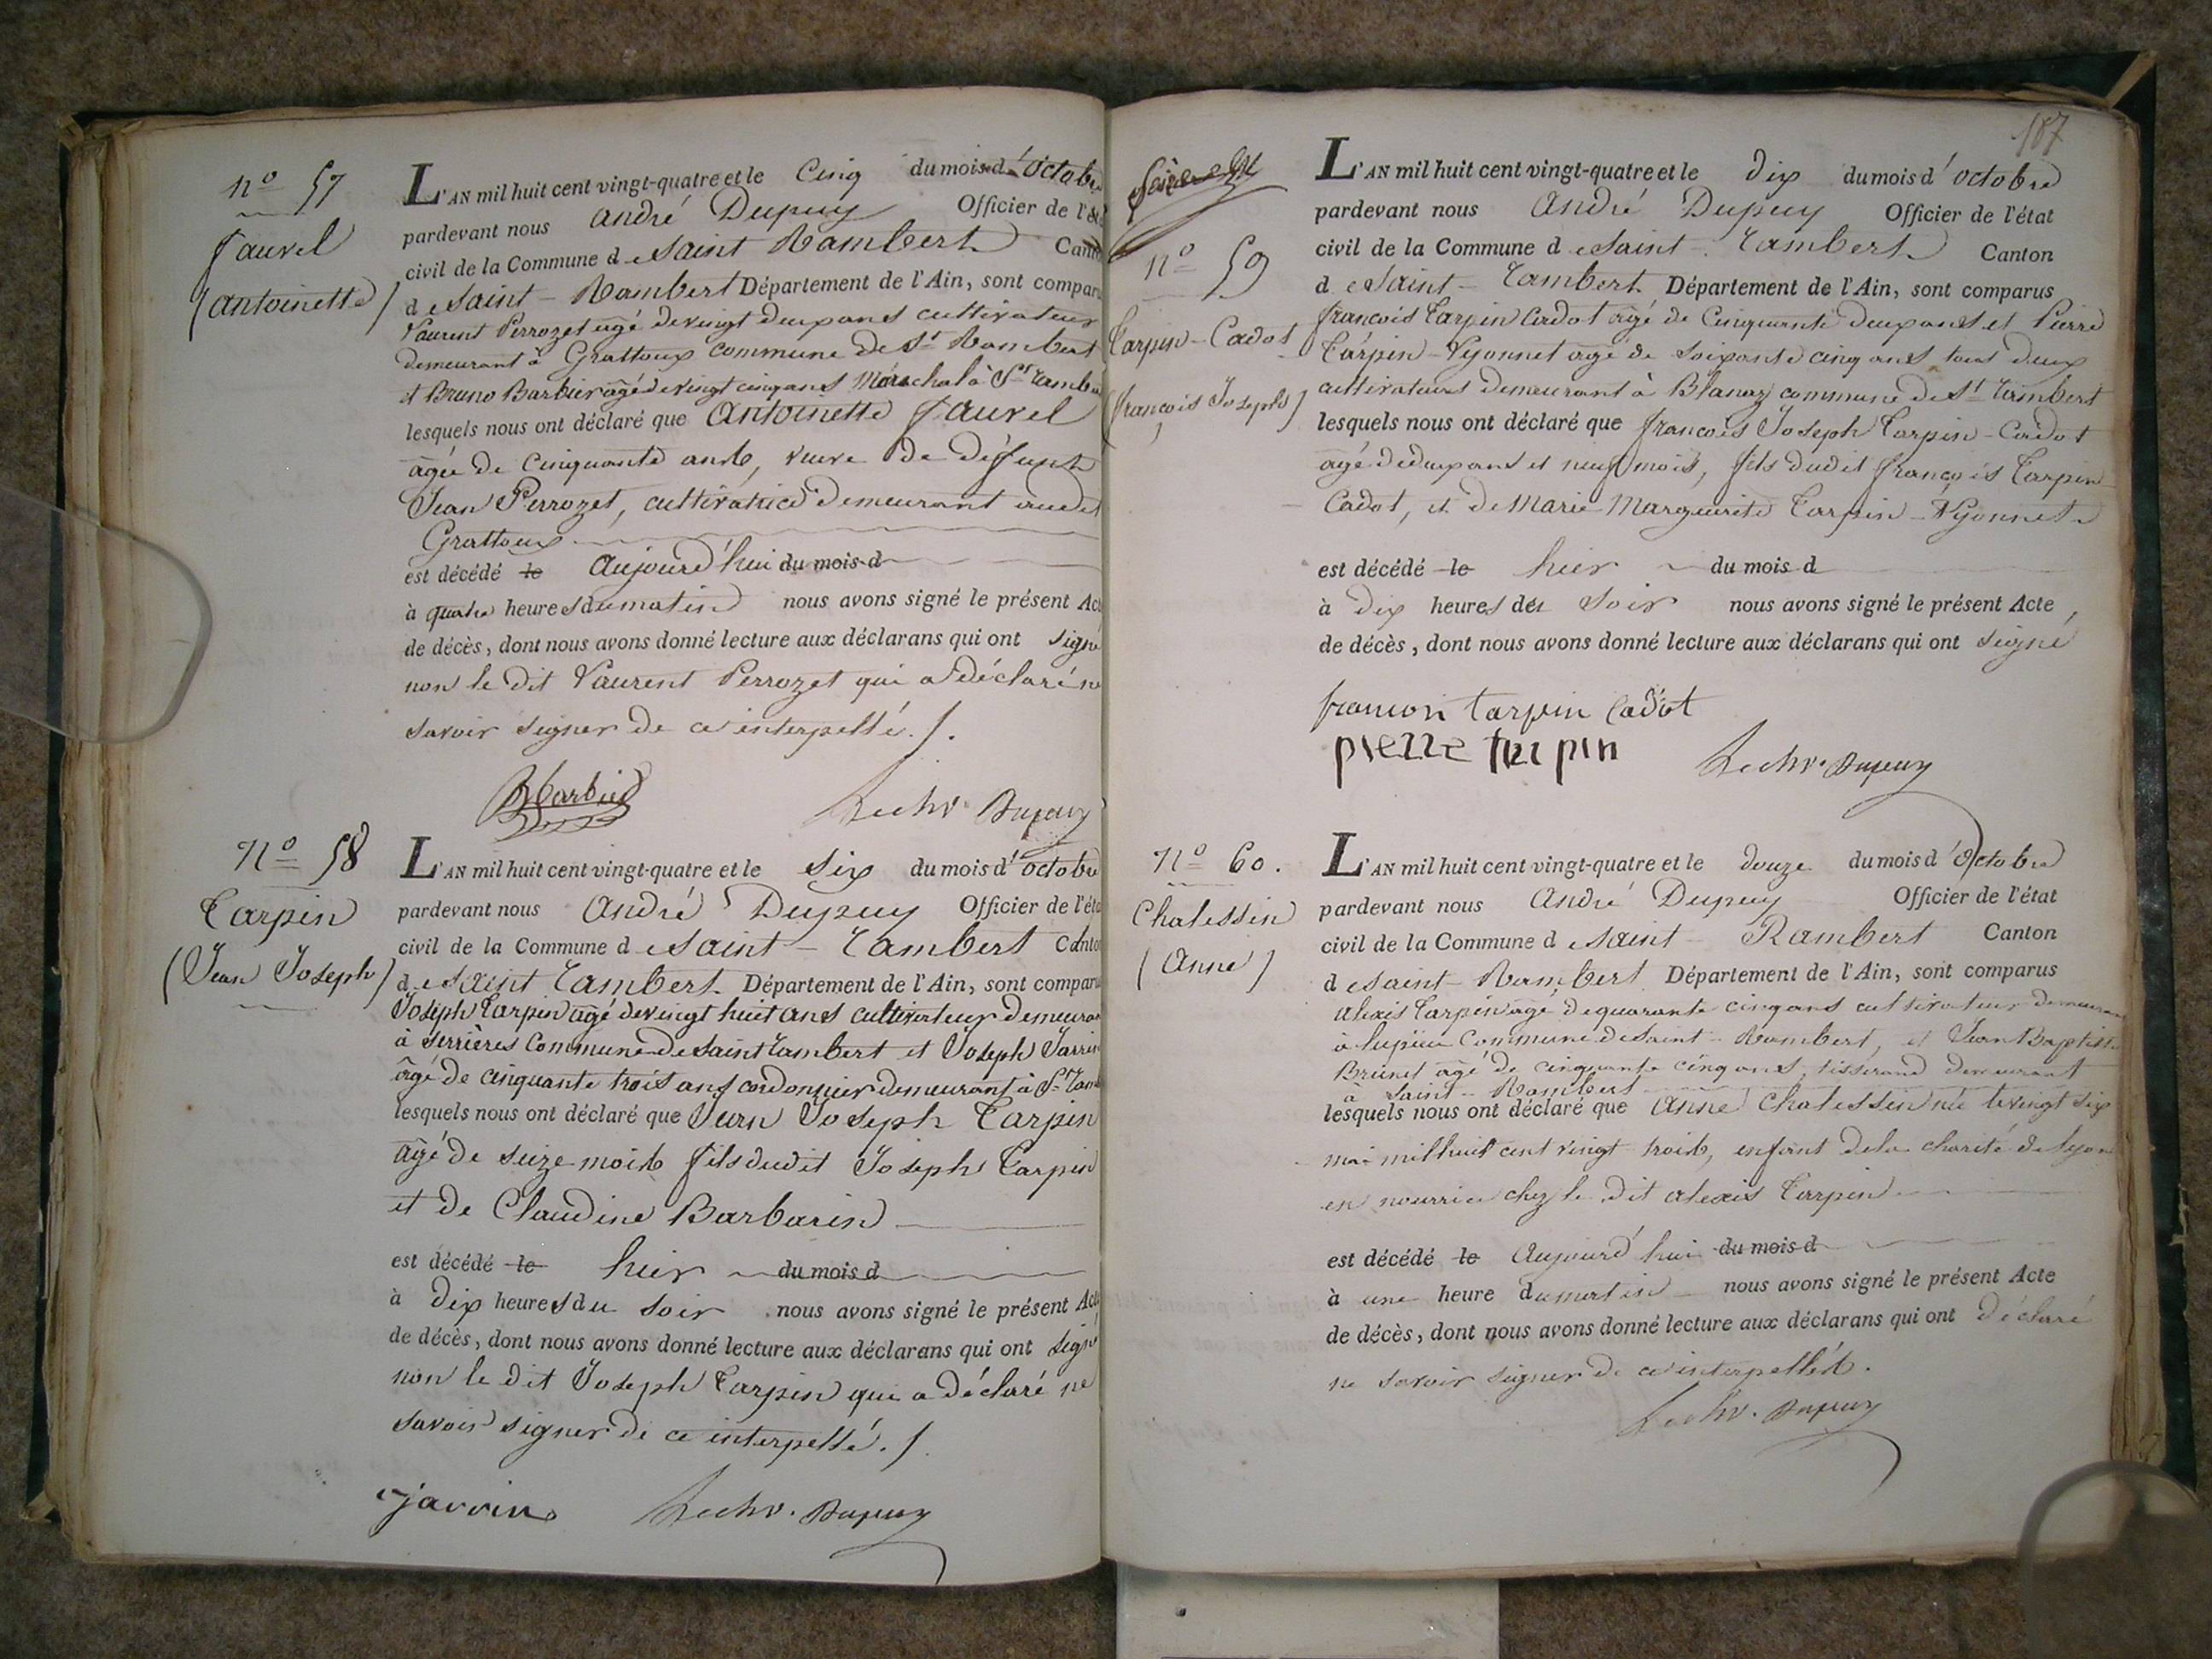 n° 57
faurel
(antoinette)
L'AN mil huit cent vingt-quatre et le Cinq du mois d'Octobre
pardevant nous andré Dupuy Officier de l'ét
civil de la Commune de Saint Rambert Canto
de Saint-Rambert Département de l'Ain, sont comparu
Laurent Perrozet agé de vingt deux ans cultivateur
demeurant à Grattoux commune de St Rambert
et Bruno Barbier agé de vingt cinq ans Maréchal à St Ramber
lesquels nous ont déclaré que Antoinette faurel
agée de cinquante ans, veuve de défunt
Jean Perrozet, cultivatrice demeurant audit
Grattoux
est décédé le aujourd'hui du mois d
à quatre heures du matin nous avons signé le présent Act
de décès, dont nous avons donné lecture aux déclarans qui ont signé
non le dit Laurent Perrozet qui a déclaré ne
savoir signer de ce interpellé ./.
BBarbier Dupuy
N° 58
Tarpin
(Jean Joseph)
L'AN mil huit cent vingt-quatre et le Six du mois d'octobre
pardevant nous André Dupuy Officier de l'éta
civil de la Commune de Saint-Rambert Canto
de Saint Rambert Département de l'Ain, sont comparu
Joseph Tarpin agé de vingt huit ans cultivateur demeuran
à Serrières Commune de Saint Rambert et Joseph Jarrin
âgé de cinquante trois ans cordonnier demeurant à St Ramb
lesquels nous ont déclaré que Jean Joseph Tarpin
agé de seize mois fils dudit Joseph Tarpin
et de Claudine Barbarin
est décédé le hier du mois d
à Dix heures du soir nous avons signé le présent Act
de décès, dont nous avons donné lecture aux déclarans qui ont signé
non le dit Joseph Tarpin qui a déclaré ne
savoir signer de ce interpellé ./.
jarrin Dupuy
107
n° 59
Tarpin-Cadot
(françois Joseph)
L'AN mil huit cent vingt-quatre et le dix du mois d'octobre
pardevant nous André Dupuy Officier de l'état
civil de la Commune de Saint-Rambert Canton
de Saint-Rambert Département de l'Ain, sont comparus
françois Tarpin Cadot agé de Cinquante deux ans et Pierre
Tarpin-Vyonnet agé de soixante cinq ans tous deux
cultivateurs demeurant à Blanaz commune de St Rambert
lesquels nous ont déclaré que françois Joseph Tarpin-Cadot
agé de deux ans et neuf mois, fils dudit françois Tarpin
Cadot, et de Marie Marguerite Tarpin-Vyonnet
est décédé le hier du mois d
à dix heures du soir nous avons signé le présent Acte
de décès, dont nous avons donné lecture aux déclarans qui ont signé
francois tarpin Cadot
pierre tarpin Dupuy
N° 60.
Chalessin
(Anne)
L'AN mil huit cent vingt-quatre et le douze du mois d'Octobre
pardevant nous André Dupuy Officier de l'état
civil de la Commune de Saint-Rambert Canton
de Saint-Rambert Département de l'Ain, sont comparus
alexis Tarpin agé de quarante cinq ans cultivateur demeurant
à Commune de Saint-Rambert, et Jean Baptiste
Brunet agé de cinquante cinq ans, tisserand demeurant
à Saint-Rambert
lesquels nous ont déclaré que Anne Chalessin née le vingt six
mai mil huit cent vingt trois, enfant de la charité de Lyon
en nourrice chez le dit alexis Tarpin
est décédé le aujourd'hui du mois d
à une heure du matin nous avons signé le présent Acte
de décès, dont nous avons donné lecture aux déclarans qui ont déclaré
ne savoir signer de ce interpellés.
Dupuy